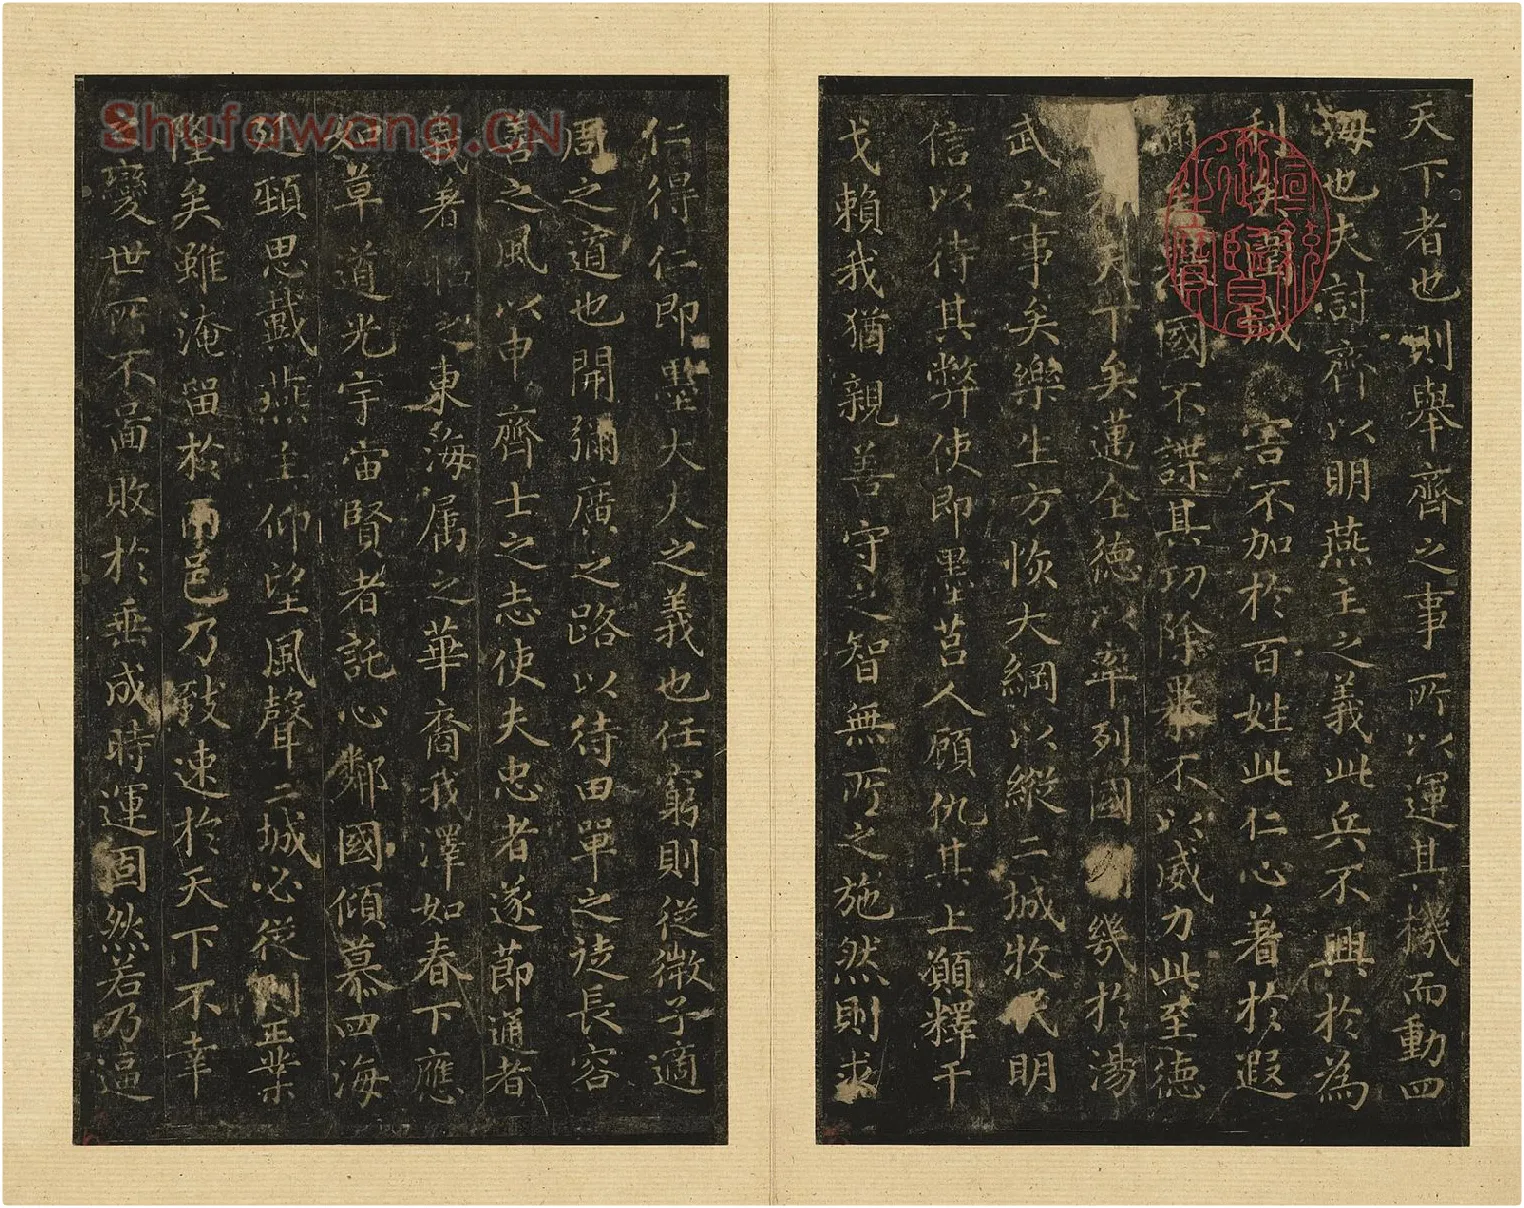 天下者也則舉齊之事所以運其機而動四
海也夫討齊以明燕主之義此兵不興於為
利 圍城 害不加於百姓此仁心著於遐
邇 國不謀其功除暴不以威力此至德
天下矣邁全德以率列國 則幾於湯
武之事矣樂生方恢大綱以縱二城牧民明
信以待其弊使即墨莒人顧仇其上願釋干
戈賴我猶親善守之智無所之施然則求
仁得仁即墨大夫之義也任窮則從微子適
周之道也開彌廣之路以待田單之徒長容
善之風以申齊士之志使夫忠者遂節通者
義著 之東海屬之華裔我澤如春下應
如草道光宇宙賢者託心鄰國傾慕四海
延頸思戴燕主仰望風聲二城必從則王業
隆矣雖淹留於兩邑乃致速於天下不幸
之變世所不圖敗於垂成時運固然若乃逼
Shufawang.CN